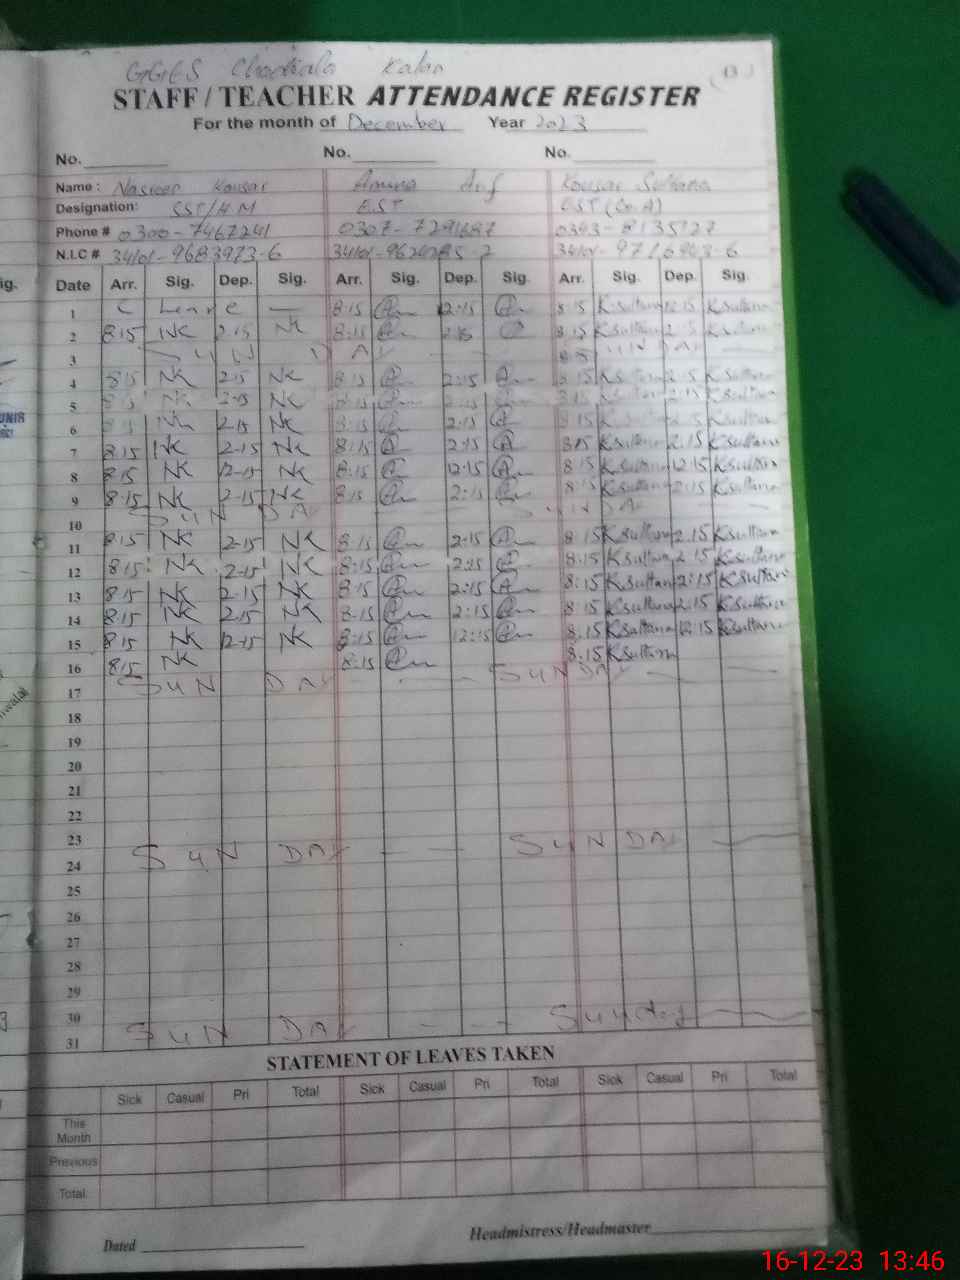 GGES Kalan
STAFF / TEACHER ATTENDANCE REGISTER
For the month of December Year 2023
No. No. No.
Name : Naseer Kousar Amina Arif Kousar Sultana
Designation: SST/H.M EST EST (Co.A)
Phone # 0300-7467241 0307-7291687 0343-8135727
N.I.C # 34101-9683973-6
Date Arr. Sig. Dep. Sig. Arr. Sig. Dep. Sig. Arr. Sig. Dep. Sig.
1 C Leave — 8:15 2:15 8:15 K.Sultana 12:15 K.Sultana
2 8:15 NK 2:15 NK 8:15 2:15 8:15 K.Sultana 2:15 K.Sultana
3 SUN DAY SUN DAY
4 8:15 NK 2:15 NK 8:15 2:15 8:15 K.Sultana 2:15 K.Sultana
5 8:15 NK 2:15 NK 8:15 2:15 8:15 K.Sultana 2:15 K.Sultana
6 8:15 NK 2:15 NK 8:15 2:15 8:15 K.Sultana 2:15 K.Sultana
7 8:15 NK 2:15 NK 8:15 2:15 8:15 K.Sultana 2:15 K.Sultana
8 8:15 NK 12:15 NK 8:15 12:15 8:15 K.Sultana 12:15 K.Sultana
9 8:15 NK 2:15 NK 8:15 2:15 8:15 K.Sultana 2:15 K.Sultana
10 SUN DAY SUN DAY
11 8:15 NK 2:15 NK 8:15 2:15 8:15 K.Sultana 2:15 K.Sultana
12 8:15 NK 2:15 NK 8:15 2:15 8:15 K.Sultana 2:15 K.Sultana
13 8:15 NK 2:15 NK 8:15 2:15 8:15 K.Sultana 2:15 K.Sultana
14 8:15 NK 2:15 NK 8:15 2:15 8:15 K.Sultana 2:15 K.Sultana
15 8:15 NK 12:15 NK 8:15 12:15 8:15 K.Sultana 12:15 K.Sultana
16 8:15 NK 8:15 8:15 K.Sultana
17 SUN DAY SUN DAY
18
19
20
21
22
23
24 SUN DAY SUN DAY
25
26
27
28
29
30
31 SUN DAY Sunday
STATEMENT OF LEAVES TAKEN
Sick Casual Pri Total Sick Casual Pri Total Sick Casual Pri Total
This Month
Previous
Total
Dated Headmistress/Headmaster
16-12-23 13:46